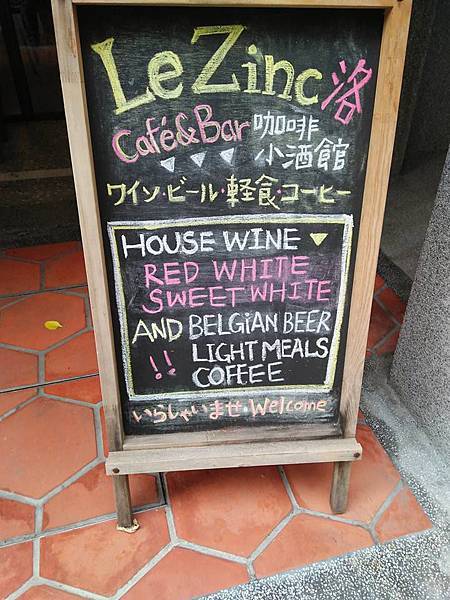 Le Zinc 洛
Café & Bar 咖啡
小酒館
ワイン・ビール・軽食・コーヒー
HOUSE WINE
RED WHITE
SWEET WHITE
AND BELGIAN BEER
!! LIGHT MEALS
COFFEE
いらしゃいませ・Welcome